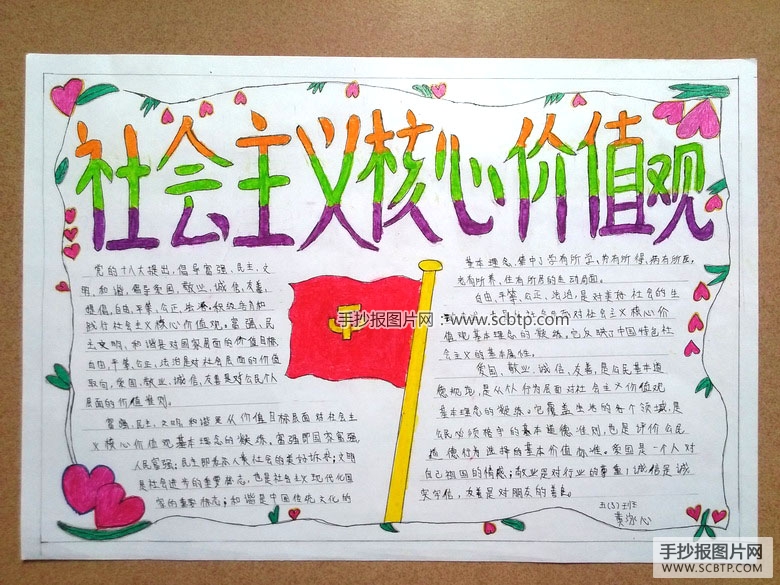 社会主义核心价值观
党的十八大提出,倡导富强、民主、文
明、和谐,倡导自由、敬业、诚信、友善,
想倡,自由、平等、公正、法治,积极培育和
践行社会主义核心价值观。富强、民
主文明、和谐是对国家层面的价值目标
自由,平等,公正,法治是对社会层面的价值
取向,爱国,敬业,诚信,友善是对公民个人
层面的价值准则。
富强,民主,文明,和谐是从价值目标层面对社会主
义核心价值观基本理念的凝练,富强即国家富强,
人民富强;民主即
人类社会的美好诉求;文明
是社会进步的重要标志,也是社会主义现代化国
家的重要标志;和谐是中国传统文化的
基本理念,集中了学有所学、劳有所得、病有所医,
老有所养、住有所居的生动局面。
自由、平等、公正、法治,是对美好社会的生
面对社会主义核心价
值观基本理念的凝练,它反映了中国特色社
会主义的基本属性。
爱国、敬业、诚信、友善,是公民基本道
德规范,是从个人行为层面对社会主义价值观
基本理念的凝练。它覆盖生活的各个领域,是
公民必须恪守的基本道德准则,也是评价公民
道德行为选择的基本价值标准。爱国是一个人对
自己祖国的情感;敬业是对行业的尊重;诚信是诚
实守信,友善是对朋友的善良。
五(3)班
黄冰心
手抄报图片网:www.scbtp.com
手抄报图片网
WWW.SCBTP.COM